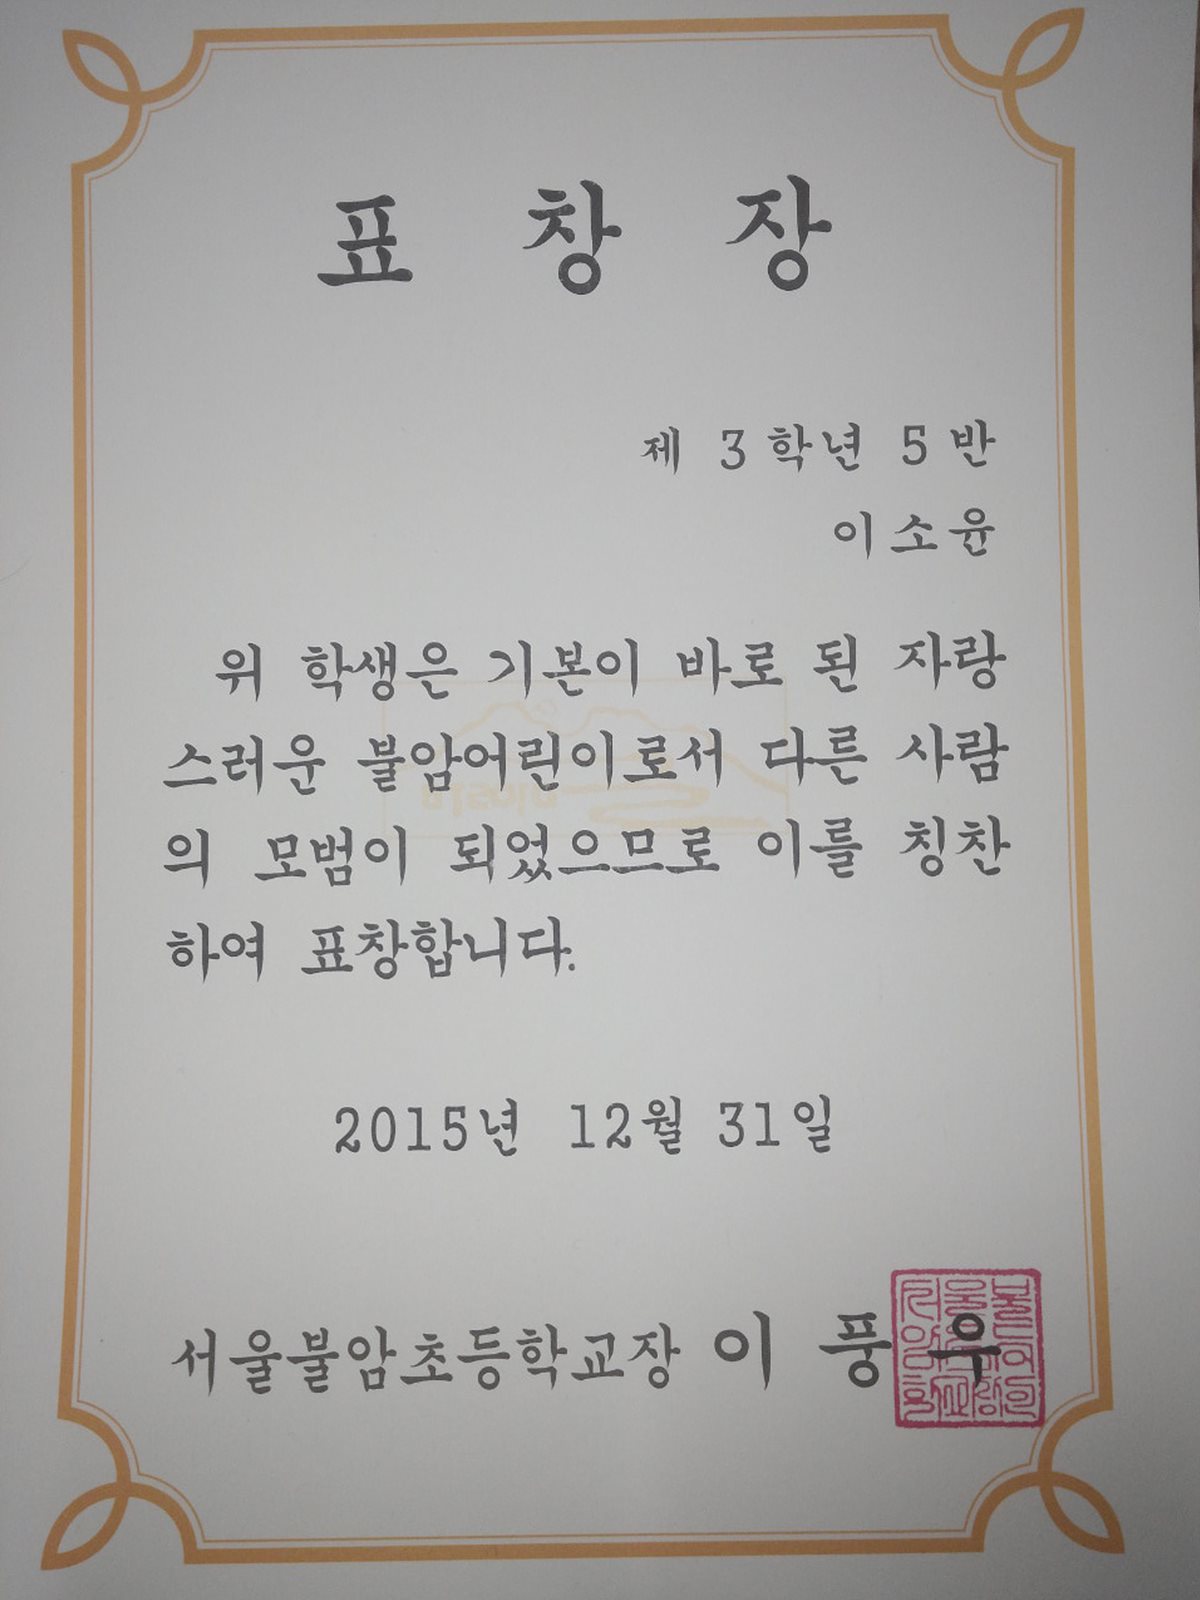 표 창 장
제 3 학년 5 반
이소윤
위 학생은 기본이 바로 된 자랑
스러운 불암어린이로서 다른 사람
의 모범이 되었으므로 이를 칭찬
하여 표창합니다.
2015년 12월 31일
서울불암초등학교장 이 풍 우